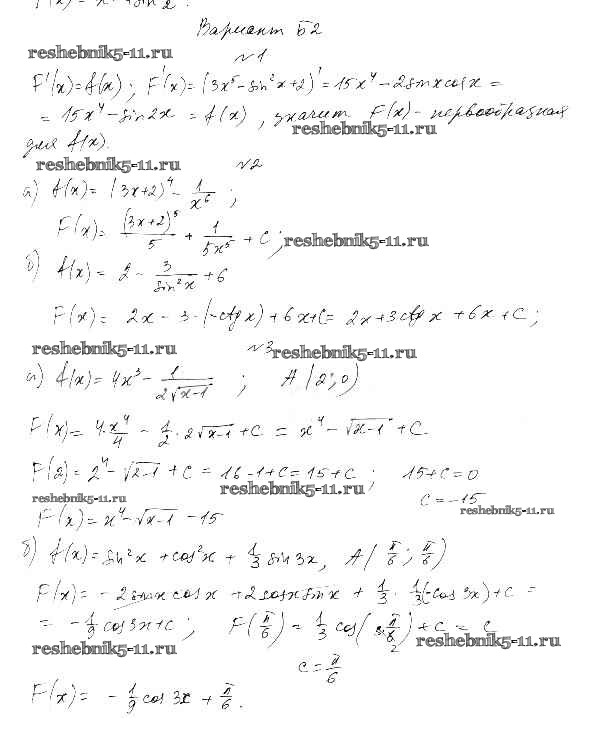 Вариант Б2
reshebnik5-11.ru
№1
F'(x)=f(x); F'(x)=(3x⁵-sin²x+2)'=15x⁴-2sinxcosx=
=15x⁴-sin2x=f(x), значит F(x)- первообразная
reshebnik5-11.ru
для f(x).
reshebnik5-11.ru
№2
а) f(x)=(3x+2)⁴-1/x⁶;
F(x)=(3x+2)⁵/5+1/5x⁵+C; reshebnik5-11.ru
б) f(x)=2-3/sin²x+6
F(x)=2x-3·(-ctgx)+6x+C=2x+3ctgx+6x+C;
reshebnik5-11.ru
№3 reshebnik5-11.ru
а) f(x)=4x³-1/2√x-1; A(2;0)
F(x)=4·x⁴/4-1/2·2√x-1+C=x⁴-√x-1+C.
F(2)=2⁴-√2-1+C=16-1+C=15+C; 15+C=0
reshebnik5-11.ru
reshebnik5-11.ru
C=-15
reshebnik5-11.ru
F(x)=x⁴-√x-1-15
б) f(x)=sin²x+cos²x+1/3sin3x, A(π/6;π/6)
F(x)=-2sinxcosx+2cosxsinx+1/3·1/3(-cos3x)+C=
=-1/9cos3x+C; F(π/6)=1/3cos(π/2)+C=C
reshebnik5-11.ru
reshebnik5-11.ru
C=π/6
F(x)=-1/9cos3x+π/6.